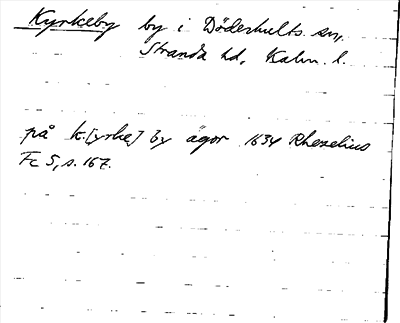 Kyrkeby by i Döderhults sn,
Stranda hd, Kalm. l.
på k[yrke] by ägor 1634 Rhezelius
Fc 5, s. 167.